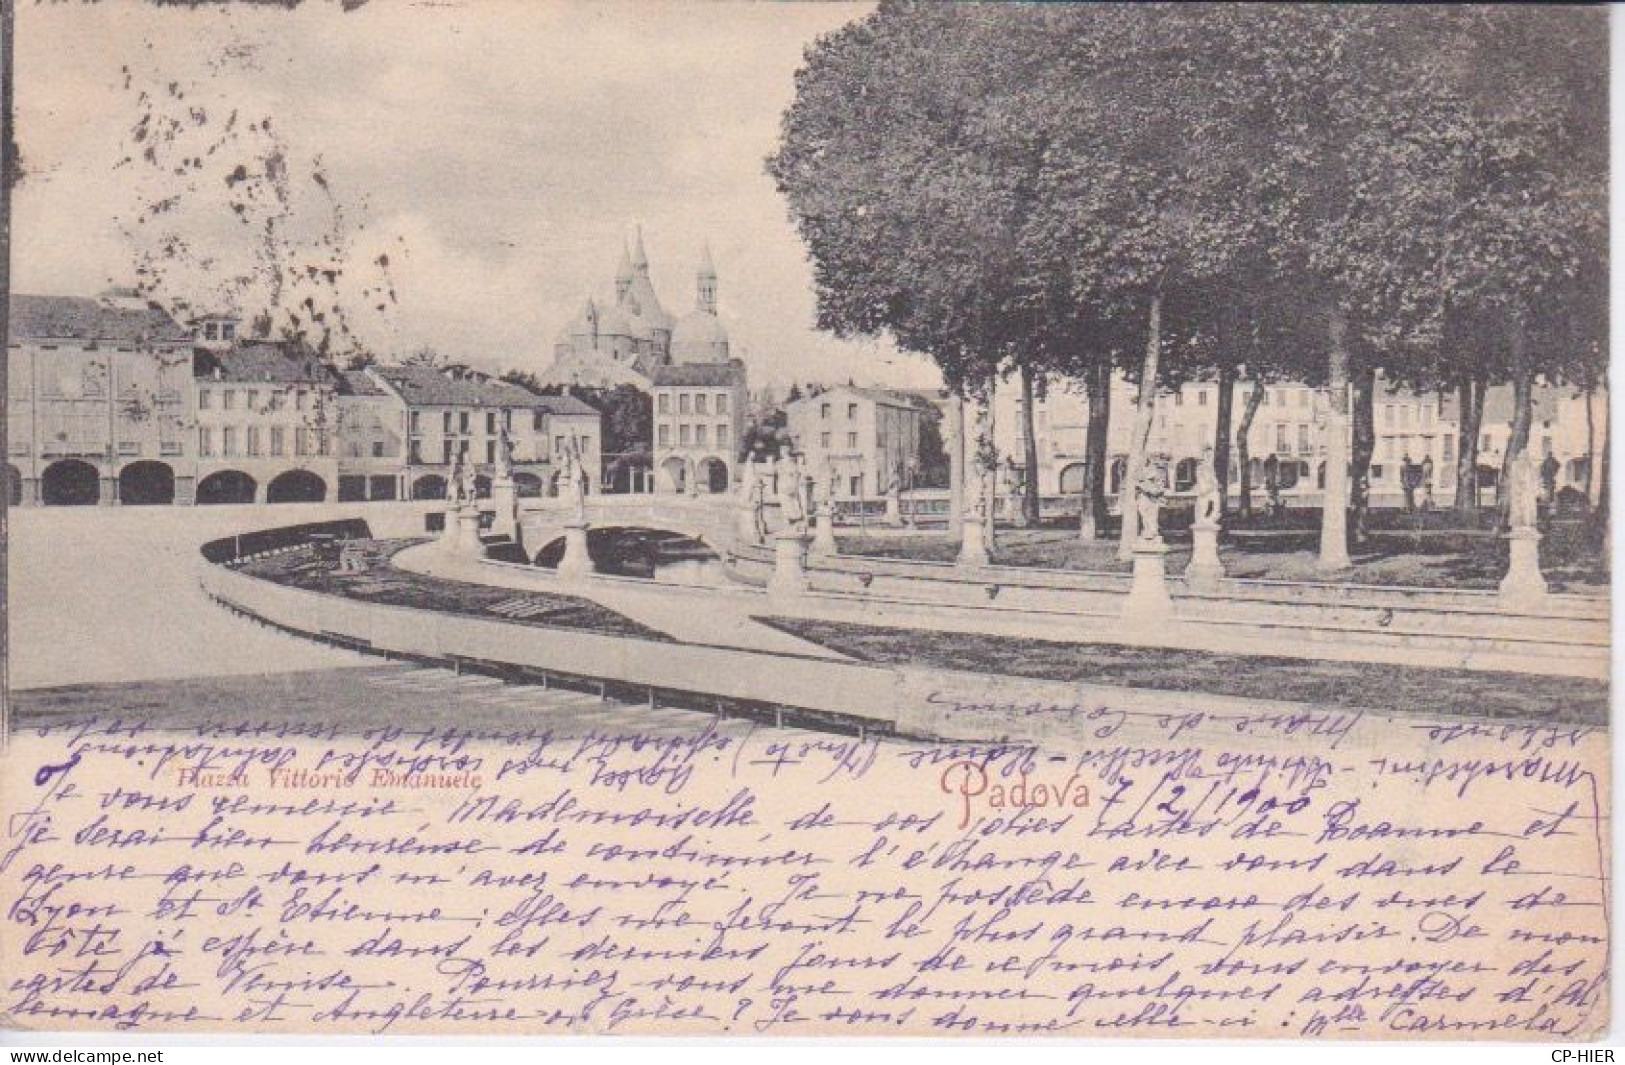 Piazza Vittorio Emanuele
Padova 7/2/1900
Je vous remercie, Mademoiselle, de vos jolies cartes de Roanne et
je serai bien heureuse de continuer l'échange avec vous dans le
genre que vous m'avez envoyé. Je ne possède encore des vues de
Lyon et St Etienne; elles me feront le plus grand plaisir. De mon
côté je espère dans les derniers jours de ce mois vous envoyer des
cartes de Venise. Pourriez-vous me donner quelques adresses d'Al
lemagne et Angleterre ou Grèce? Je vous donne celle-ci: Mlle Carmela
Marchesini - Istituto - Udine (Veneto)
Agréez mes cordiales salutations
CP-HIER